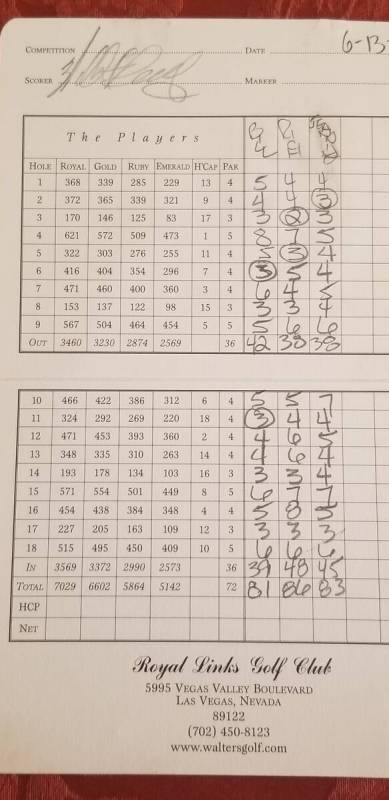 COMPETITION DATE 6-13-
SCORER MARKER
The Players
HOLE ROYAL GOLD RUBY EMERALD H'CAP PAR
1 368 339 285 229 13 4 5 4 4
2 372 365 339 321 9 4 4 4 3
3 170 146 125 83 17 3 3 2 3
4 621 572 509 473 1 5 8 7 5
5 322 303 276 255 11 4 5 3 4
6 416 404 354 296 7 4 3 5 4
7 471 460 400 360 3 4 6 4 5
8 153 137 122 98 15 3 3 3 4
9 567 504 464 454 5 5 5 6 6
OUT 3460 3230 2874 2569 36 42 38 38
10 466 422 386 312 6 4 5 5 7
11 324 292 269 220 18 4 3 4 4
12 471 453 393 360 2 4 4 6 5
13 348 335 310 263 14 4 4 6 4
14 193 178 134 103 16 3 3 3 4
15 571 554 501 449 8 5 6 7 7
16 454 438 384 348 4 4 5 8 5
17 227 205 163 109 12 3 3 3 3
18 515 495 450 409 10 5 6 6 6
IN 3569 3372 2990 2573 36 39 48 45
TOTAL 7029 6602 5864 5142 72 81 86 83
HCP
NET
Royal Links Golf Club
5995 VEGAS VALLEY BOULEVARD
LAS VEGAS, NEVADA
89122
(702) 450-8123
www.waltersgolf.com